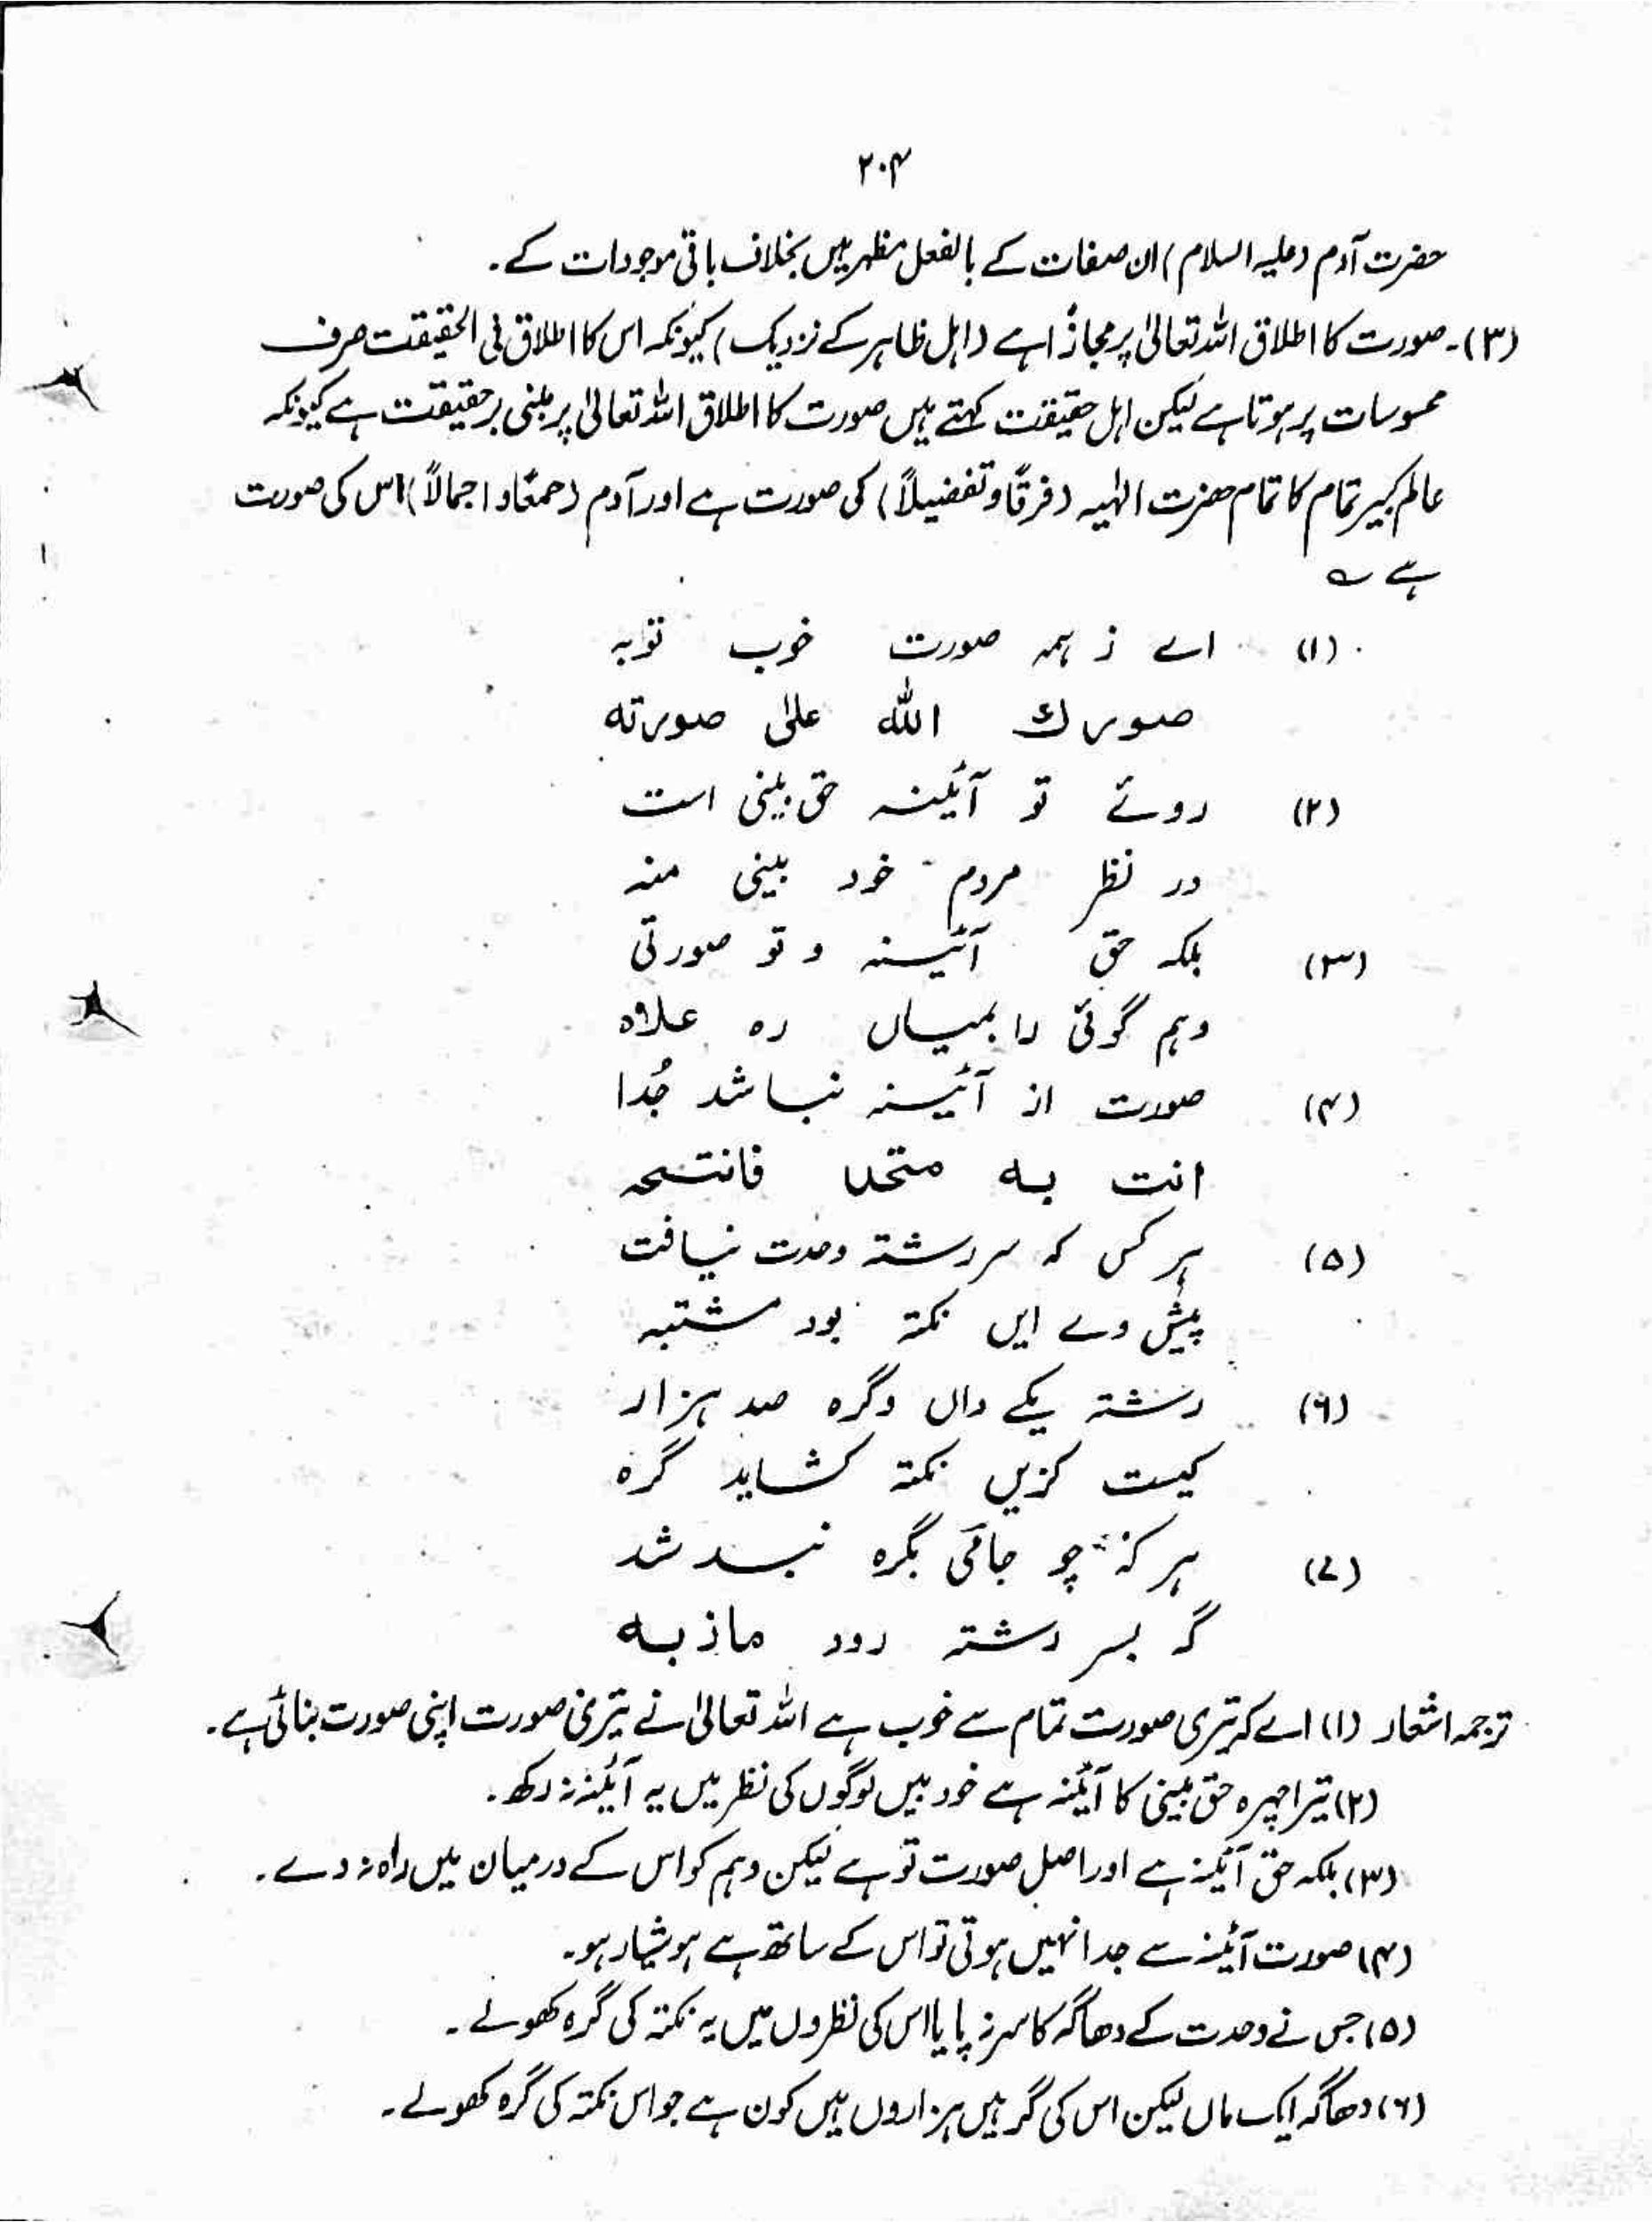 ۲۰۴
حضرت آدم (علیہ السلام) ان صفات کے بالفعل مظہر ہیں بخلاف باقی موجودات کے۔
(۳)۔ صورت کا اطلاق اللہ تعالیٰ پر مجازاً ہے (اہل ظاہر کے نزدیک) کیونکہ اس کا اطلاق فی الحقیقت صرف
محسوسات پر ہوتا ہے لیکن اہل حقیقت کہتے ہیں صورت کا اطلاق اللہ تعالیٰ پر مبنی بر حقیقت ہے کیونکہ
عالم کبیر تمام کا تمام حضرت الٰہیہ (فرقاً و تفضیلاً) کی صورت ہے اور آدم (جمعًا و اجمالاً) اس کی صورت
ہے ؎
(۱) اے ز ہمہ صورت خوب توبہ
صورك الله علیٰ صورته
(۲) روئے تو آئینہ حق بینی است
در نظر مردم خود بینی منہ
(۳) بلکہ حق آئینہ و تو صورتی
وہم گوئی را بمیاں رہ علاہ
(۴) صورت از آئینہ نباشد جُدا
انت به متحد فانتسحه
(۵) ہر کس کہ سر رشتہ وحدت نیافت
پیش وے ایں نکتہ بود مشتبہ
(۶) رشتہ یکے داں و گرہ صد ہزار
کیست کزیں نکتہ کشاید گرہ
(۷) ہر کہ چو جامی بگرہ نبد شد
گر بسر رشتہ رود ماذبه
ترجمہ اشعار (۱) اے کہ تیری صورت تمام سے خوب ہے اللہ تعالیٰ نے تیری صورت اپنی صورت بنائی ہے۔
(۲) تیرا چہرہ حق بینی کا آئینہ ہے خود بیں لوگوں کی نظر میں یہ آئینہ نہ رکھ۔
(۳) بلکہ حق آئینہ ہے اور اصل صورت تو ہے لیکن وہم کو اس کے درمیان میں راہ نہ دے۔
(۴) صورت آئینہ سے جدا نہیں ہوتی تو اس کے ساتھ ہے ہوشیار ہو۔
(۵) جس نے وحدت کے دھاگہ کا سر نہ پایا اس کی نظروں میں یہ نکتہ کی گرہ کھولے۔
(۶) دھاگہ ایک ماں لیکن اس کی گرہیں ہزاروں ہیں کون ہے جو اس نکتہ کی گرہ کھولے۔